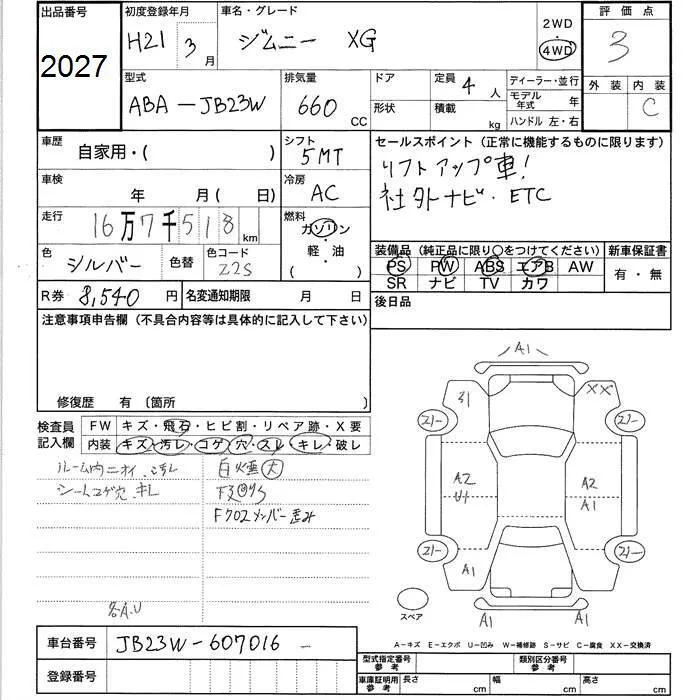 出品番号
2027
初度登録年月
H21 3月
車名・グレード
ジムニー XG
2WD
4WD
評価点
3
外装 内装
C
型式
ABA-JB23W
排気量
660 CC
ドア
形状
定員 4人
積載 kg
ディーラー・並行
モデル年式 年
ハンドル 左・右
車歴
自家用・( )
シフト
5MT
セールスポイント (正常に機能するものに限ります)
リフトアップ車!
社外ナビ・ETC
車検
年 月( 日)
冷房
AC
走行
16万7千518km
燃料
ガソリン
・
軽・油
( )
色
シルバー
色替
色コード
Z2S
装備品 (純正品に限り○をつけてください)
PS PW ABS エアB AW
SR ナビ TV カワ
新車保証書
有・無
R券 8,540円
名変通知期限 月 日
後日品
注意事項申告欄 (不具合内容等は具体的に記入して下さい)
修復歴 有 〔箇所
検査員記入欄
FW キズ・飛石・ヒビ割・リペア跡・X要
内装 キズ・汚レ・コゲ・穴・スレ・キレ・破レ
ルーム内ニオイ、汚レ
シートコゲ穴、キレ
白煙大
下廻りサ
F クロスメンバー歪み
各A.U
A1
XX
21-
21-
A2
A2
A1
21-
21-
A1
スペア
A1
A1
A-キズ E-エクボ U-凹み W-補修跡 S-サビ C-腐食 XX-交換済
車台番号 JB23W-607016
登録番号
型式指定番号
参考
類別区分番号
参考
車庫証明用
参考
長さ cm
幅 cm
高さ cm